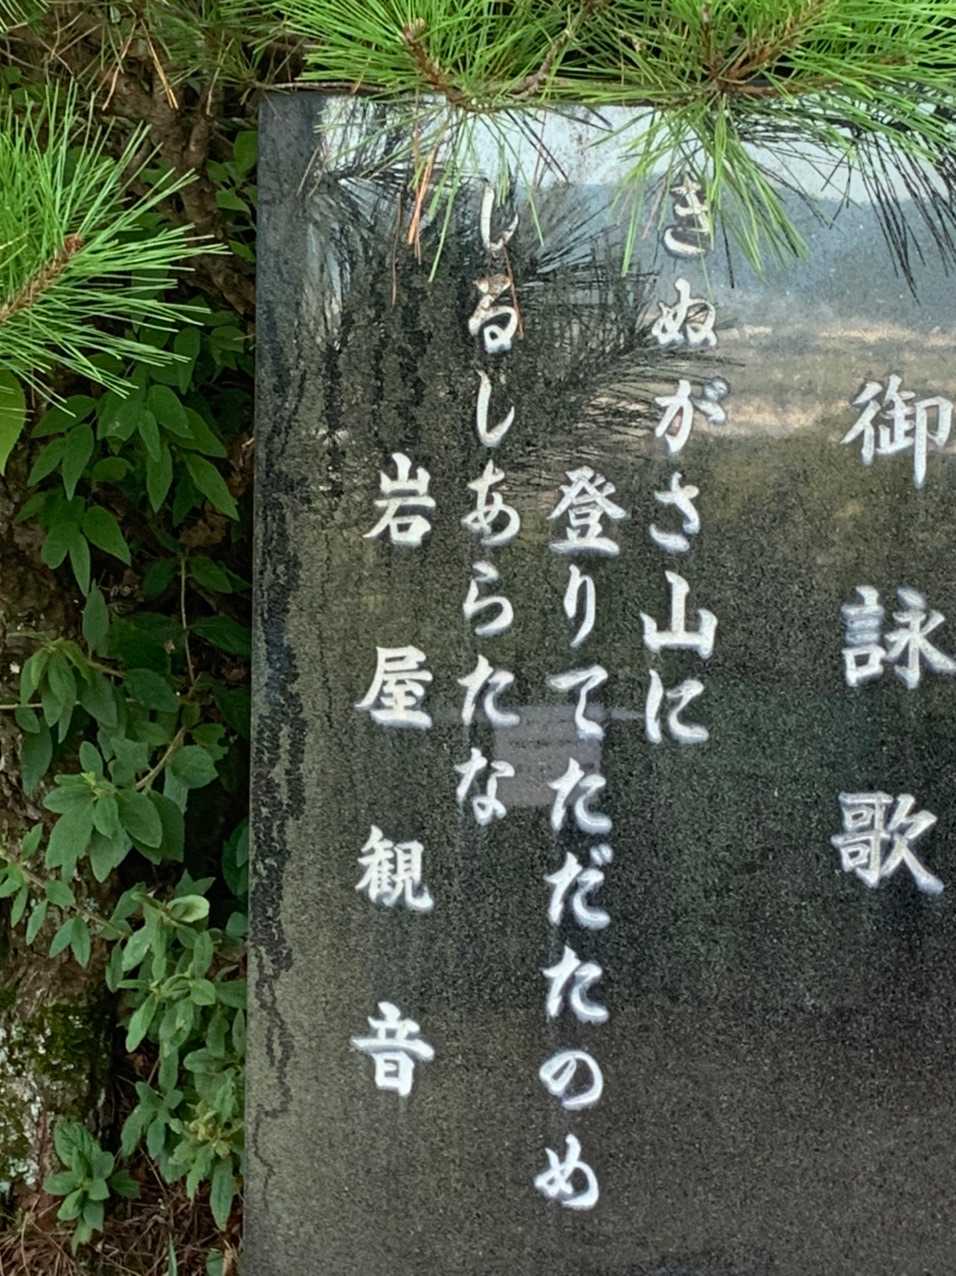 御詠歌
きぬがさ山に
登りてただたのめ
しるしあらたな
岩屋観音